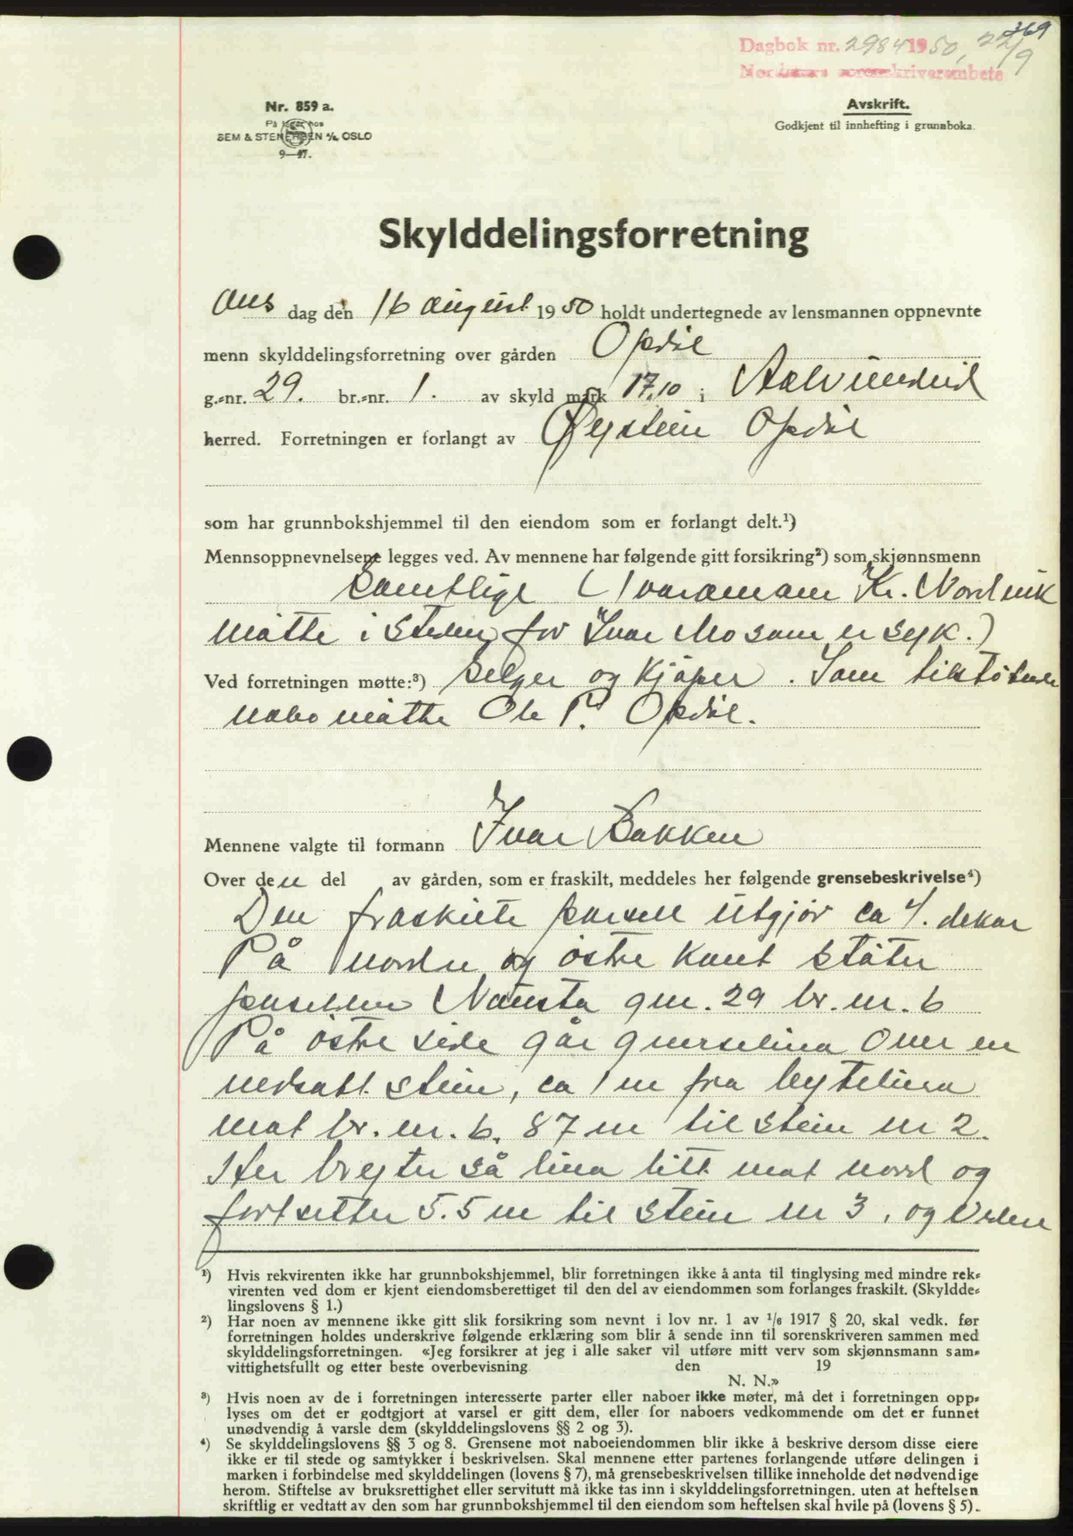 369
Dagbok nr. 2984 1950, 22/9
Nordmøre sorenskriverembete
Nr. 859 a.
På lager hos
SEM & STENERSEN A/S, OSLO
9—47.
Avskrift.
Godkjent til innhefting i grunnboka.
Skylddelingsforretning
Ons dag den 16 august 1950 holdt undertegnede av lensmannen oppnevnte
menn skylddelingsforretning over gården Opdøl
g.-nr. 29. br.-nr. 1. av skyld mark 17,10 i Aalvundeid
herred. Forretningen er forlangt av Øystein Opdøl
som har grunnbokshjemmel til den eiendom som er forlangt delt.¹)
Mennsoppnevnelsene legges ved. Av mennene har følgende gitt forsikring²) som skjønnsmenn
Samtlige (Varamann Kr. Nordvik
møtte i steden for Ivar Mo som er syk.)
Ved forretningen møtte:³) Selger og Kjøper. Som tilstøtende
nabo møtte Ole P. Opdøl.
Mennene valgte til formann Ivar Bakken
Over den del av gården, som er fraskilt, meddeles her følgende grensebeskrivelse⁴)
Den fraskilte parsell utgjør ca 4. dekar
På nordre og østre kant støter
parsellen Natusta gnr. 29 br. nr. 6
På østre side går grenselina over en
nedsatt stein, ca 1 m fra bytelina
mot br. nr. 6. 87 m til stein nr 2.
Her bryter så lina litt mot nord og
fortsetter 5.5 m til stein nr 3, og videre
¹) Hvis rekvirenten ikke har grunnbokshjemmel, blir forretningen ikke å anta til tinglysing med mindre rek-
virenten ved dom er kjent eiendomsberettiget til den del av eiendommen som forlanges fraskilt. (Skyldde-
lingslovens § 1.)
²) Har noen av mennene ikke gitt slik forsikring som nevnt i lov nr. 1 av 1/6 1917 § 20, skal vedk. før
forretningen holdes underskrive følgende erklæring som blir å sende inn til sorenskriveren sammen med
skylddelingsforretningen. «Jeg forsikrer at jeg i alle saker vil utføre mitt verv som skjønnsmann sam-
vittighetsfullt og etter beste overbevisning den 19
N. N.»
³) Hvis noen av de i forretningen interesserte parter eller naboer ikke møter, må det i forretningen opp-
lyses om det er godtgjort at varsel er gitt dem, eller for naboers vedkommende om det er funnet
unødvendig å varsle dem (skylddelingslovens §§ 2 og 3).
⁴) Se skylddelingslovens §§ 3 og 8. Grensene mot naboeiendommen blir ikke å beskrive dersom disse eiere
ikke er til stede og samtykker i beskrivelsen. Skal mennene etter partenes forlangende utføre delingen i
marken i forbindelse med skylddelingen (lovens § 7), må grensebeskrivelsen tillike inneholde det nødvendige
herom. Stiftelse av bruksrettighet eller servitutt må ikke tas inn i skylddelingsforretningen, uten at heftelsen
skriftlig er vedtatt av den som har grunnbokshjemmel til den eiendom som heftelsen skal hvile på (lovens § 5).